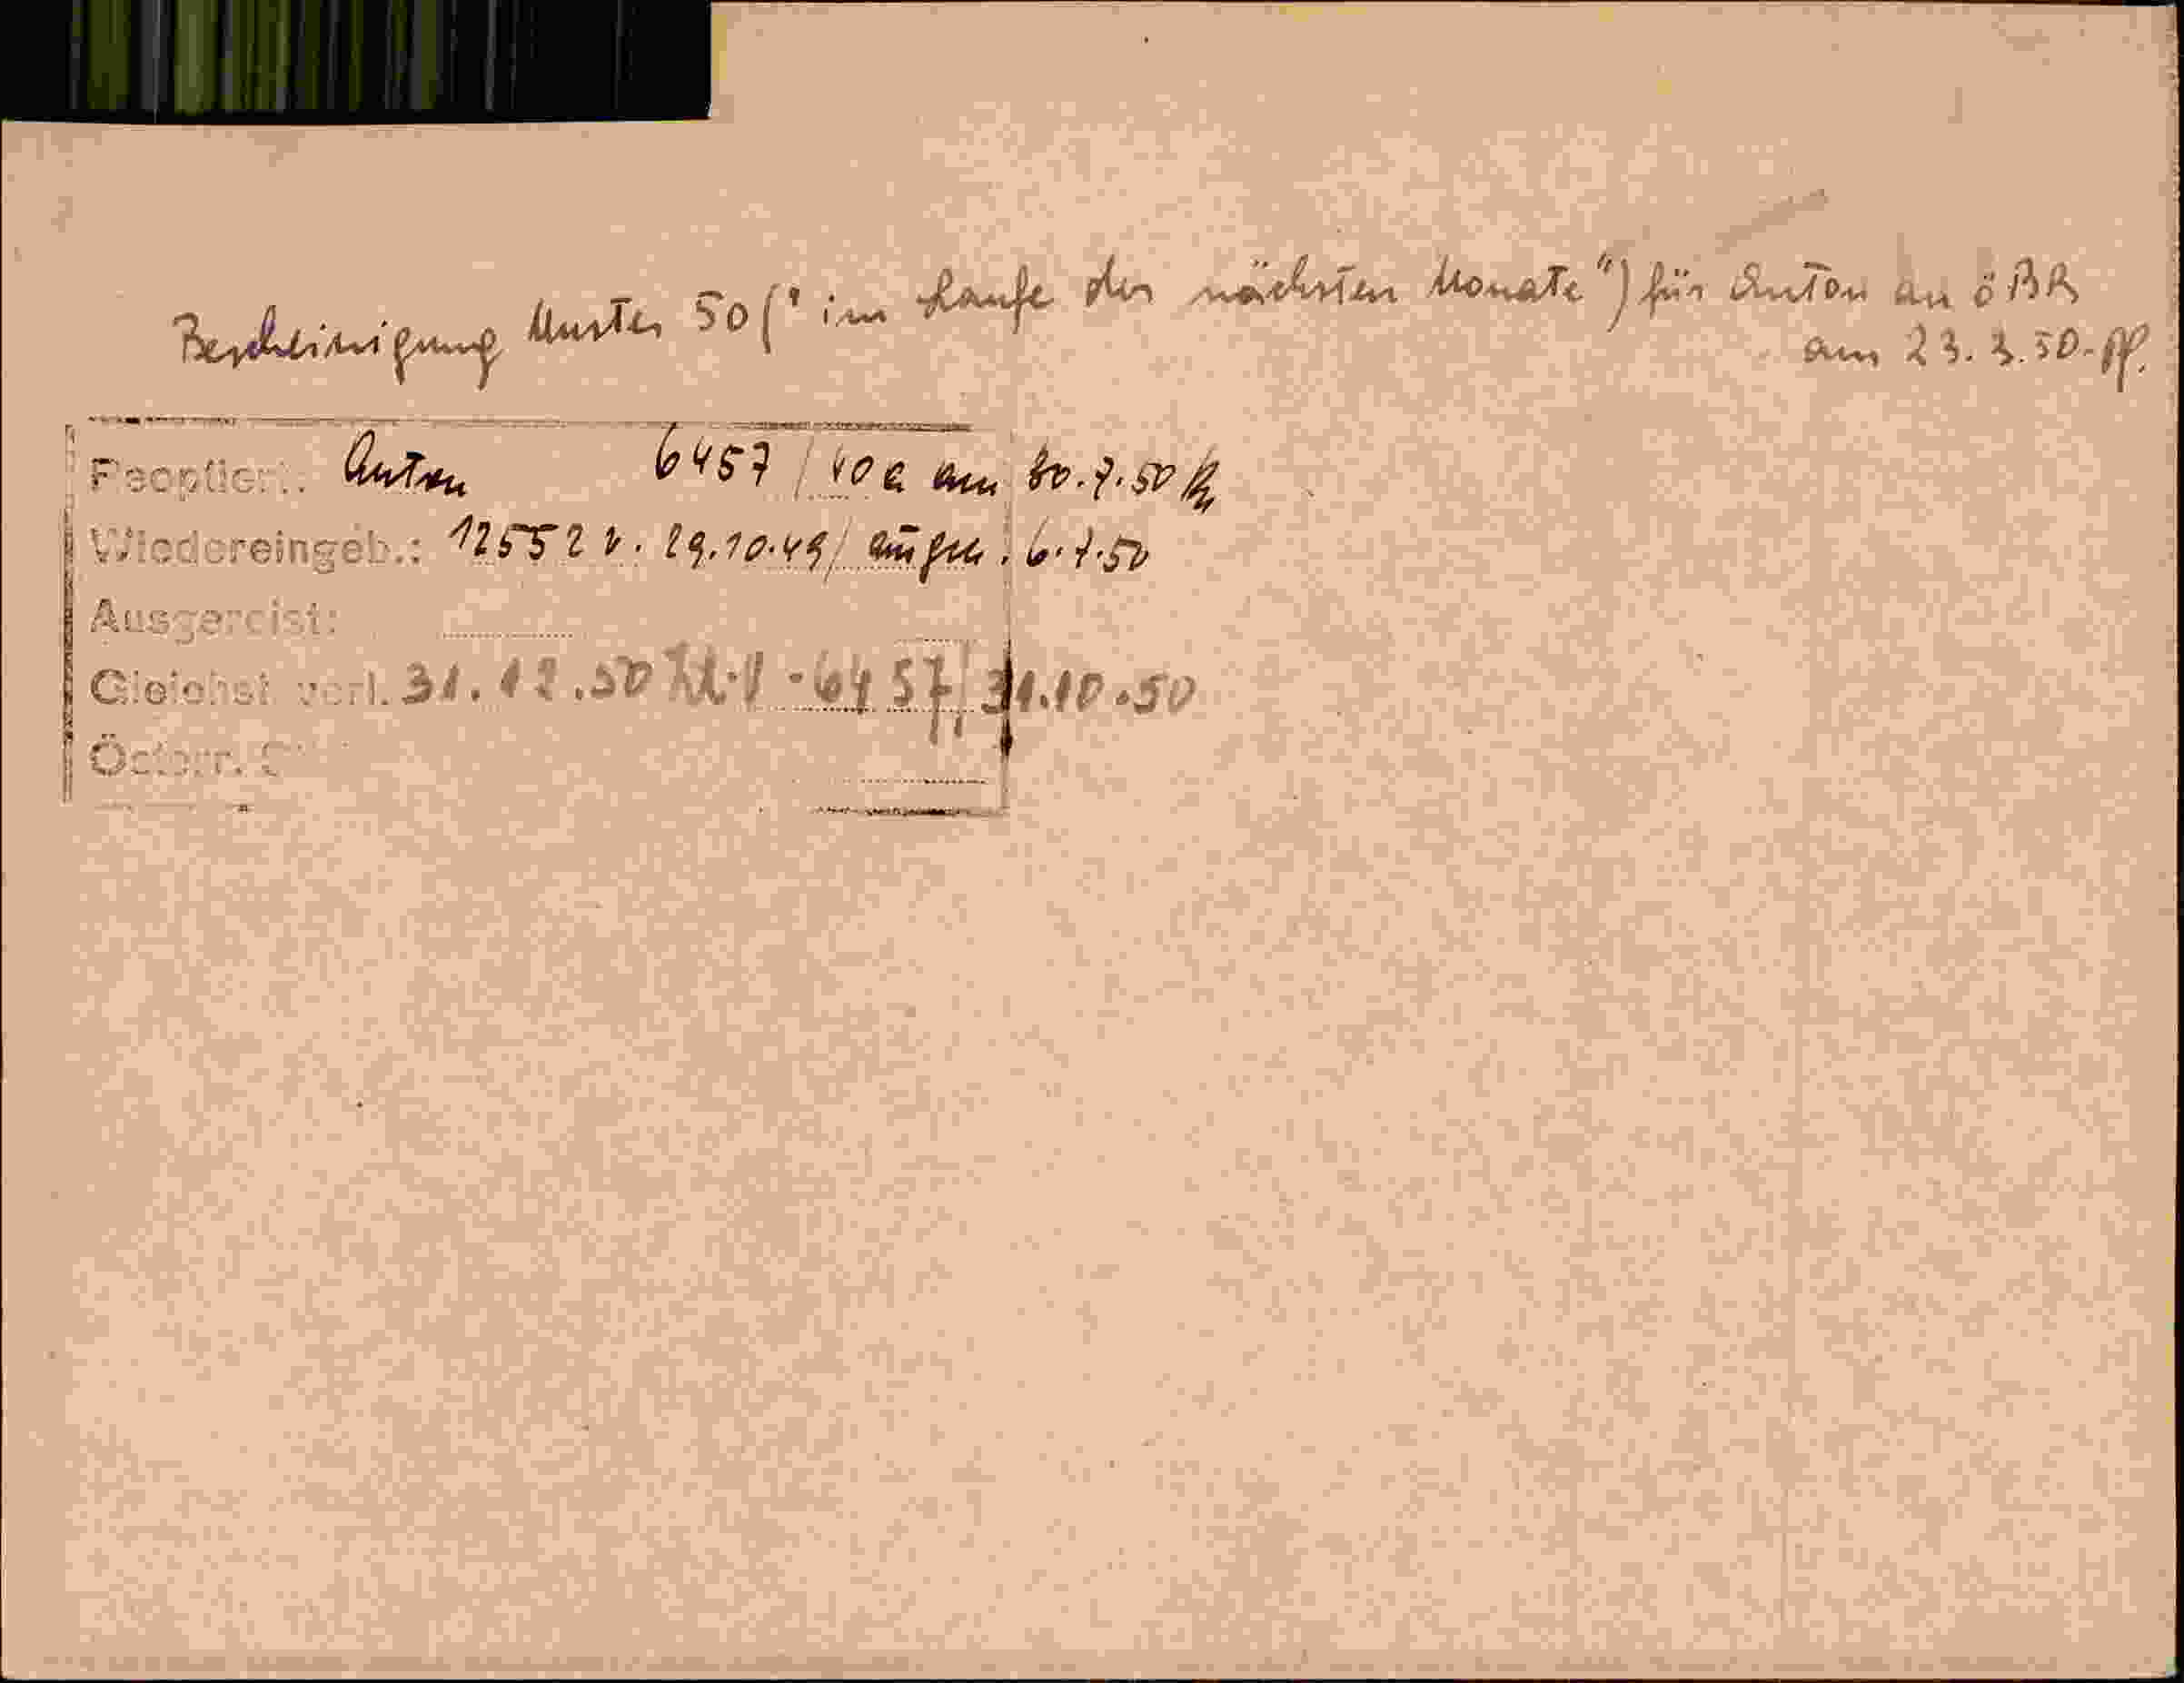 Bescheinigung Muster 50 („im Laufe der nächsten Monate") für Anton an öBR
am 23.3.50-
Reoptiert: Anton 6457 / 10a am 30.7.50
Wiedereingeb.: 12552 v. 29.10.49/ 6.7.50
Ausgereist:
Gleichst. verl. 31.12.50 6457, 31.10.50
Österr.